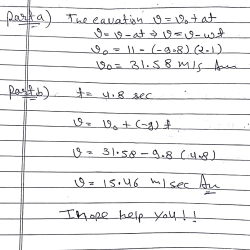 Part a) The equation v = v₀ + at
v = v - at ⇒ v = v - wt
v₀ = 11 - (-9.8) (2.1)
v₀ = 31.58 m/s Ans
Part b) t = 4.8 sec
v = v₀ + (-g) t
v = 31.58 - 9.8 (4.8)
v = 15.46 m/sec Ans
I hope help you!!